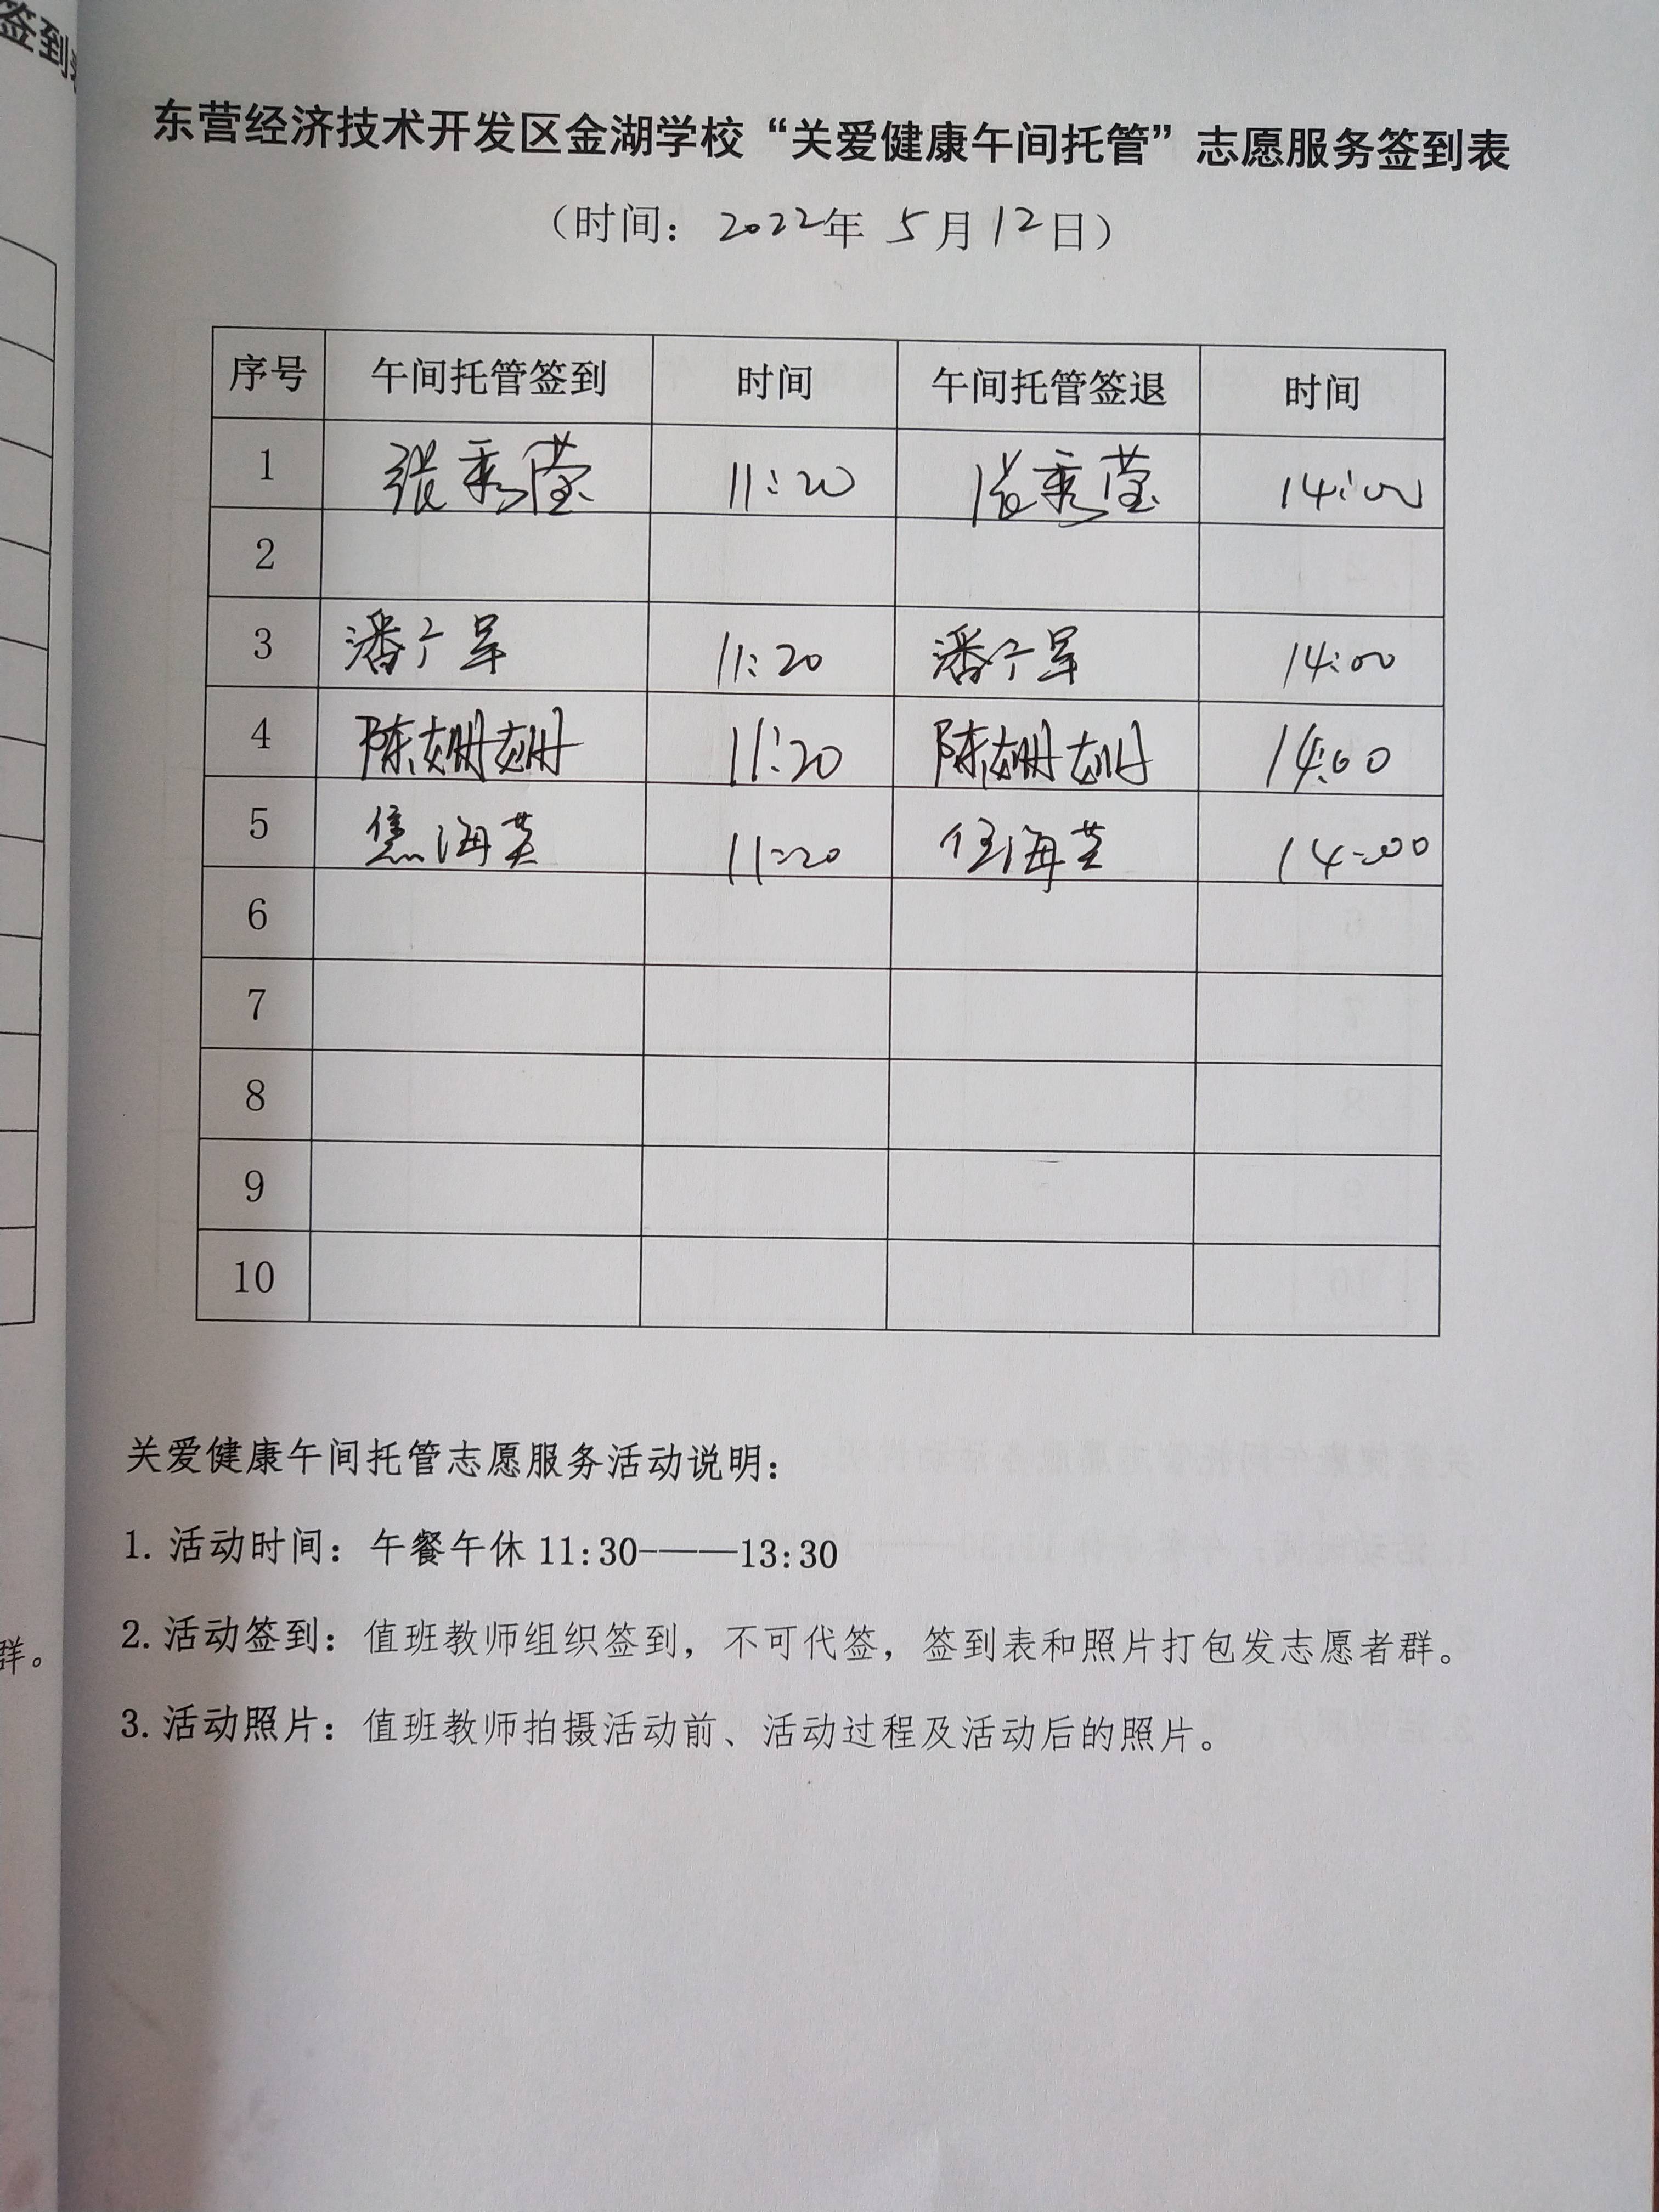 签到
东营经济技术开发区金湖学校“关爱健康午间托管”志愿服务签到表
（时间：2022年 5月12日）
序号 午间托管签到 时间 午间托管签退 时间
1 张秀莹 11:20 张秀莹 14:00
2
3 潘广军 11:20 潘广军 14:00
4 陈姗姗 11:20 陈姗姗 14:00
5 焦海英 11:20 焦海英 14:00
6
7
8
9
10
关爱健康午间托管志愿服务活动说明：
1. 活动时间：午餐午休 11:30-——13:30
群。
2. 活动签到：值班教师组织签到，不可代签，签到表和照片打包发志愿者群。
3. 活动照片：值班教师拍摄活动前、活动过程及活动后的照片。